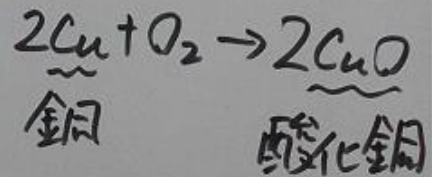 2Cu+O₂→2CuO
銅 酸化銅